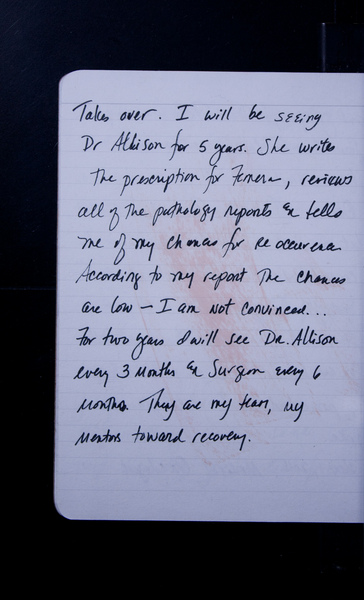 Takes over. I will be seeing
Dr Allison for 5 years. She writes
the prescription for Femera, reviews
all of the pathology reports & tells
me of my chances for reoccurence
According to my report the chances
are low – I am not convinced...
For two years I will see Dr. Allison
every 3 months & Surgeon every 6
months. They are my team, my
mentors toward recovery.